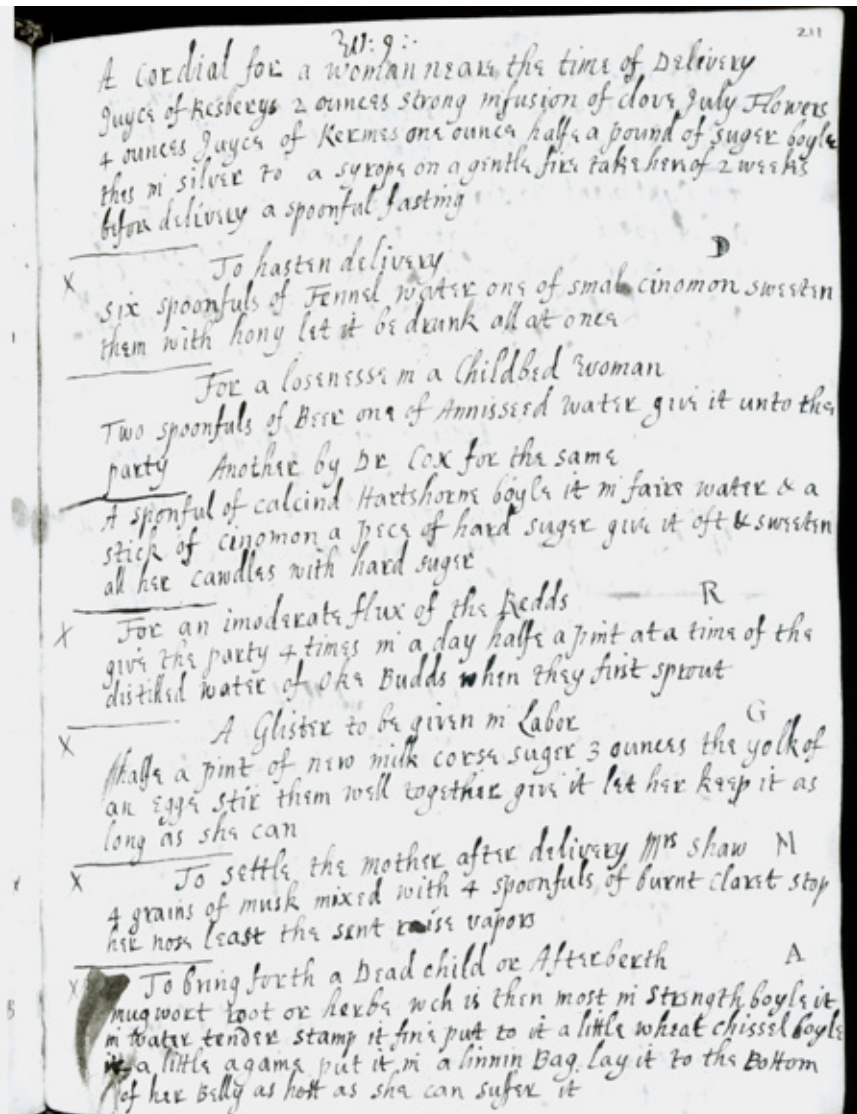 211
W: 9:
A Cordial for a woman neare the time of Delivery
Juyce of Resberys 2 ounces strong infusion of clove July Flowers
4 ounces Juyce of Kermes one ounce halfe a pound of suger boyle
thes in silver to a syrope on a gentle fire take here of 2 weeks
before delivery a spoonful fasting
D
X To hasten delivery
six spoonfuls of Fennel water one of smal cinomon sweeten
them with hony let it be drunk all at once
For a losenesse in a Childbed Woman
Two spoonfuls of Beer one of Annisseed water give it unto the
party Another by Dr. Cox for the same
A sponful of calcind Hartshorne boyle it in faire water & a
stick of cinomon a pece of hard suger give it oft & sweeten
all her cawdles with hard suger
X For an imoderate flux of the Redds R
give the party 4 times in a day halfe a pint at a time of the
distilled water of Oke Budds when they first sprout
X A Glister to be given in Labor G
halfe a pint of new milk corse suger 3 ounces the yolk of
an egge stir them well together give it let her keep it as
long as she can
X To settle the mother after delivery Mrs Shaw M
4 grains of musk mixed with 4 spoonfuls of burnt claret stop
her nose least the sent raise vapors
X To bring forth a Dead child or Afterberth A
mugwort root or herbe wch is then most in strength boyle it
in water tender stamp it fine put to it a little wheat chissel boyle
it a little againe put it in a linnin Bag lay it to the Bottom
of her Belly as hott as she can sufer it